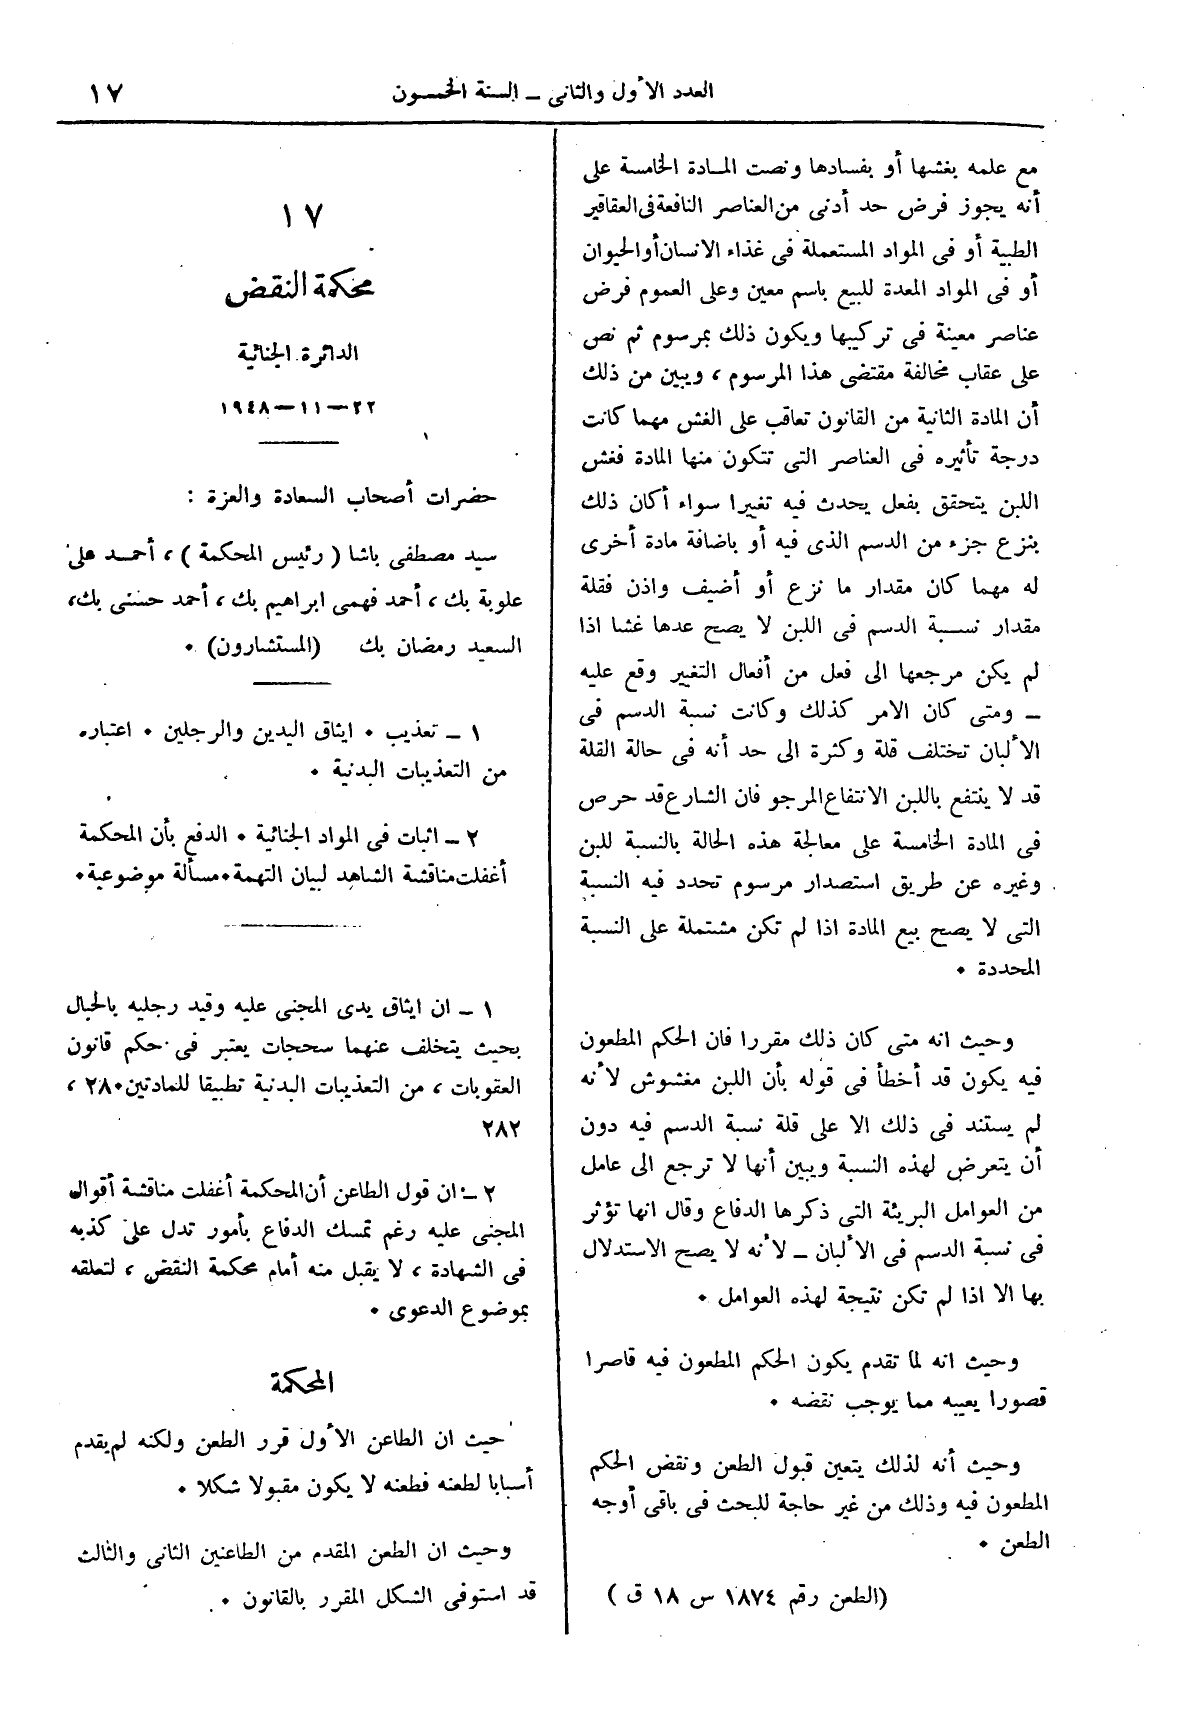 العدد الأول والثانى ــ السنة الخمسون
١٧
مع علمه بغشها أو بفسادها ونصت المادة الخامسة على
أنه يجوز فرض حد أدنى من العناصر النافعة فى العقاقير
الطبية أو فى المواد المستعملة فى غذاء الانسان أو الحيوان
أو فى المواد المعدة للبيع باسم معين وعلى العموم فرض
عناصر معينة فى تركيبها ويكون ذلك بمرسوم ثم نص
على عقاب مخالفة مقتضى هذا المرسوم ، ويبين من ذلك
أن المادة الثانية من القانون تعاقب على الغش مهما كانت
درجة تأثيره فى العناصر التى تتكون منها المادة فغش
اللبن يتحقق بفعل يحدث فيه تغييرا سواء أكان ذلك
بنزع جزء من الدسم الذى فيه أو باضافة مادة أخرى
له مهما كان مقدار ما نزع أو أضيف واذن فقلة
مقدار نسبة الدسم فى اللبن لا يصح عدها غشا اذا
لم يكن مرجعها الى فعل من أفعال التغيير وقع عليه
ــ ومتى كان الامر كذلك وكانت نسبة الدسم فى
الألبان تختلف قلة وكثرة الى حد أنه فى حالة القلة
قد لا ينتفع باللبن الانتفاع المرجو فان الشارع قد حرص
فى المادة الخامسة على معالجة هذه الحالة بالنسبة للبن
وغيره عن طريق استصدار مرسوم تحدد فيه النسبة
التى لا يصح بيع المادة اذا لم تكن مشتملة على النسبة
المحددة ٠
وحيث انه متى كان ذلك مقررا فان الحكم المطعون
فيه يكون قد أخطأ فى قوله بأن اللبن مغشوش لأنه
لم يستند فى ذلك الا على قلة نسبة الدسم فيه دون
أن يتعرض لهذه النسبة ويبين أنها لا ترجع الى عامل
من العوامل البريئة التى ذكرها الدفاع وقال انها تؤثر
فى نسبة الدسم فى الألبان ــ لأنه لا يصح الاستدلال
بها الا اذا لم تكن نتيجة لهذه العوامل ٠
وحيث انه لما تقدم يكون الحكم المطعون فيه قاصرا
قصورا يعيبه مما يوجب نقضه ٠
وحيث أنه لذلك يتعين قبول الطعن ونقض الحكم
المطعون فيه وذلك من غير حاجة للبحث فى باقى أوجه
الطعن ٠
(الطعن رقم ١٨٧٤ س ١٨ ق )
١٧
محكمة النقض
الدائرة الجنائية
٢٢ــ١١ــ١٩٤٨
حضرات أصحاب السعادة والعزة :
سيد مصطفى باشا ( رئيس المحكمة ) ، أحمد على
علوبة بك ، أحمد فهمى ابراهيم بك ، أحمد حسنى بك ،
السعيد رمضان بك (المستشارون) ٠
١ ــ تعذيب ٠ ايثاق اليدين والرجلين ٠ اعتباره
من التعذيبات البدنية ٠
٢ ــ اثبات فى المواد الجنائية ٠ الدفع بأن المحكمة
أغفلت مناقشة الشاهد لبيان التهمة ٠ مسألة موضوعية ٠
١ ــ ان ايثاق يدى المجنى عليه وقيد رجليه بالحبال
بحيث يتخلف عنهما سحجات يعتبر فى حكم قانون
العقوبات ، من التعذيبات البدنية تطبيقا للمادتين ٢٨٠ ،
٢٨٢
٢ ــ ان قول الطاعن أن المحكمة أغفلت مناقشة أقوال
المجنى عليه رغم تمسك الدفاع بأمور تدل على كذبه
فى الشهادة ، لا يقبل منه أمام محكمة النقض ، لتعلقه
بموضوع الدعوى ٠
المحكمة
حيث ان الطاعن الأول قرر الطعن ولكنه لم يقدم
أسبابا لطعنه فطعنه لا يكون مقبولا شكلا ٠
وحيث ان الطعن المقدم من الطاعنين الثانى والثالث
قد استوفى الشكل المقرر بالقانون ٠